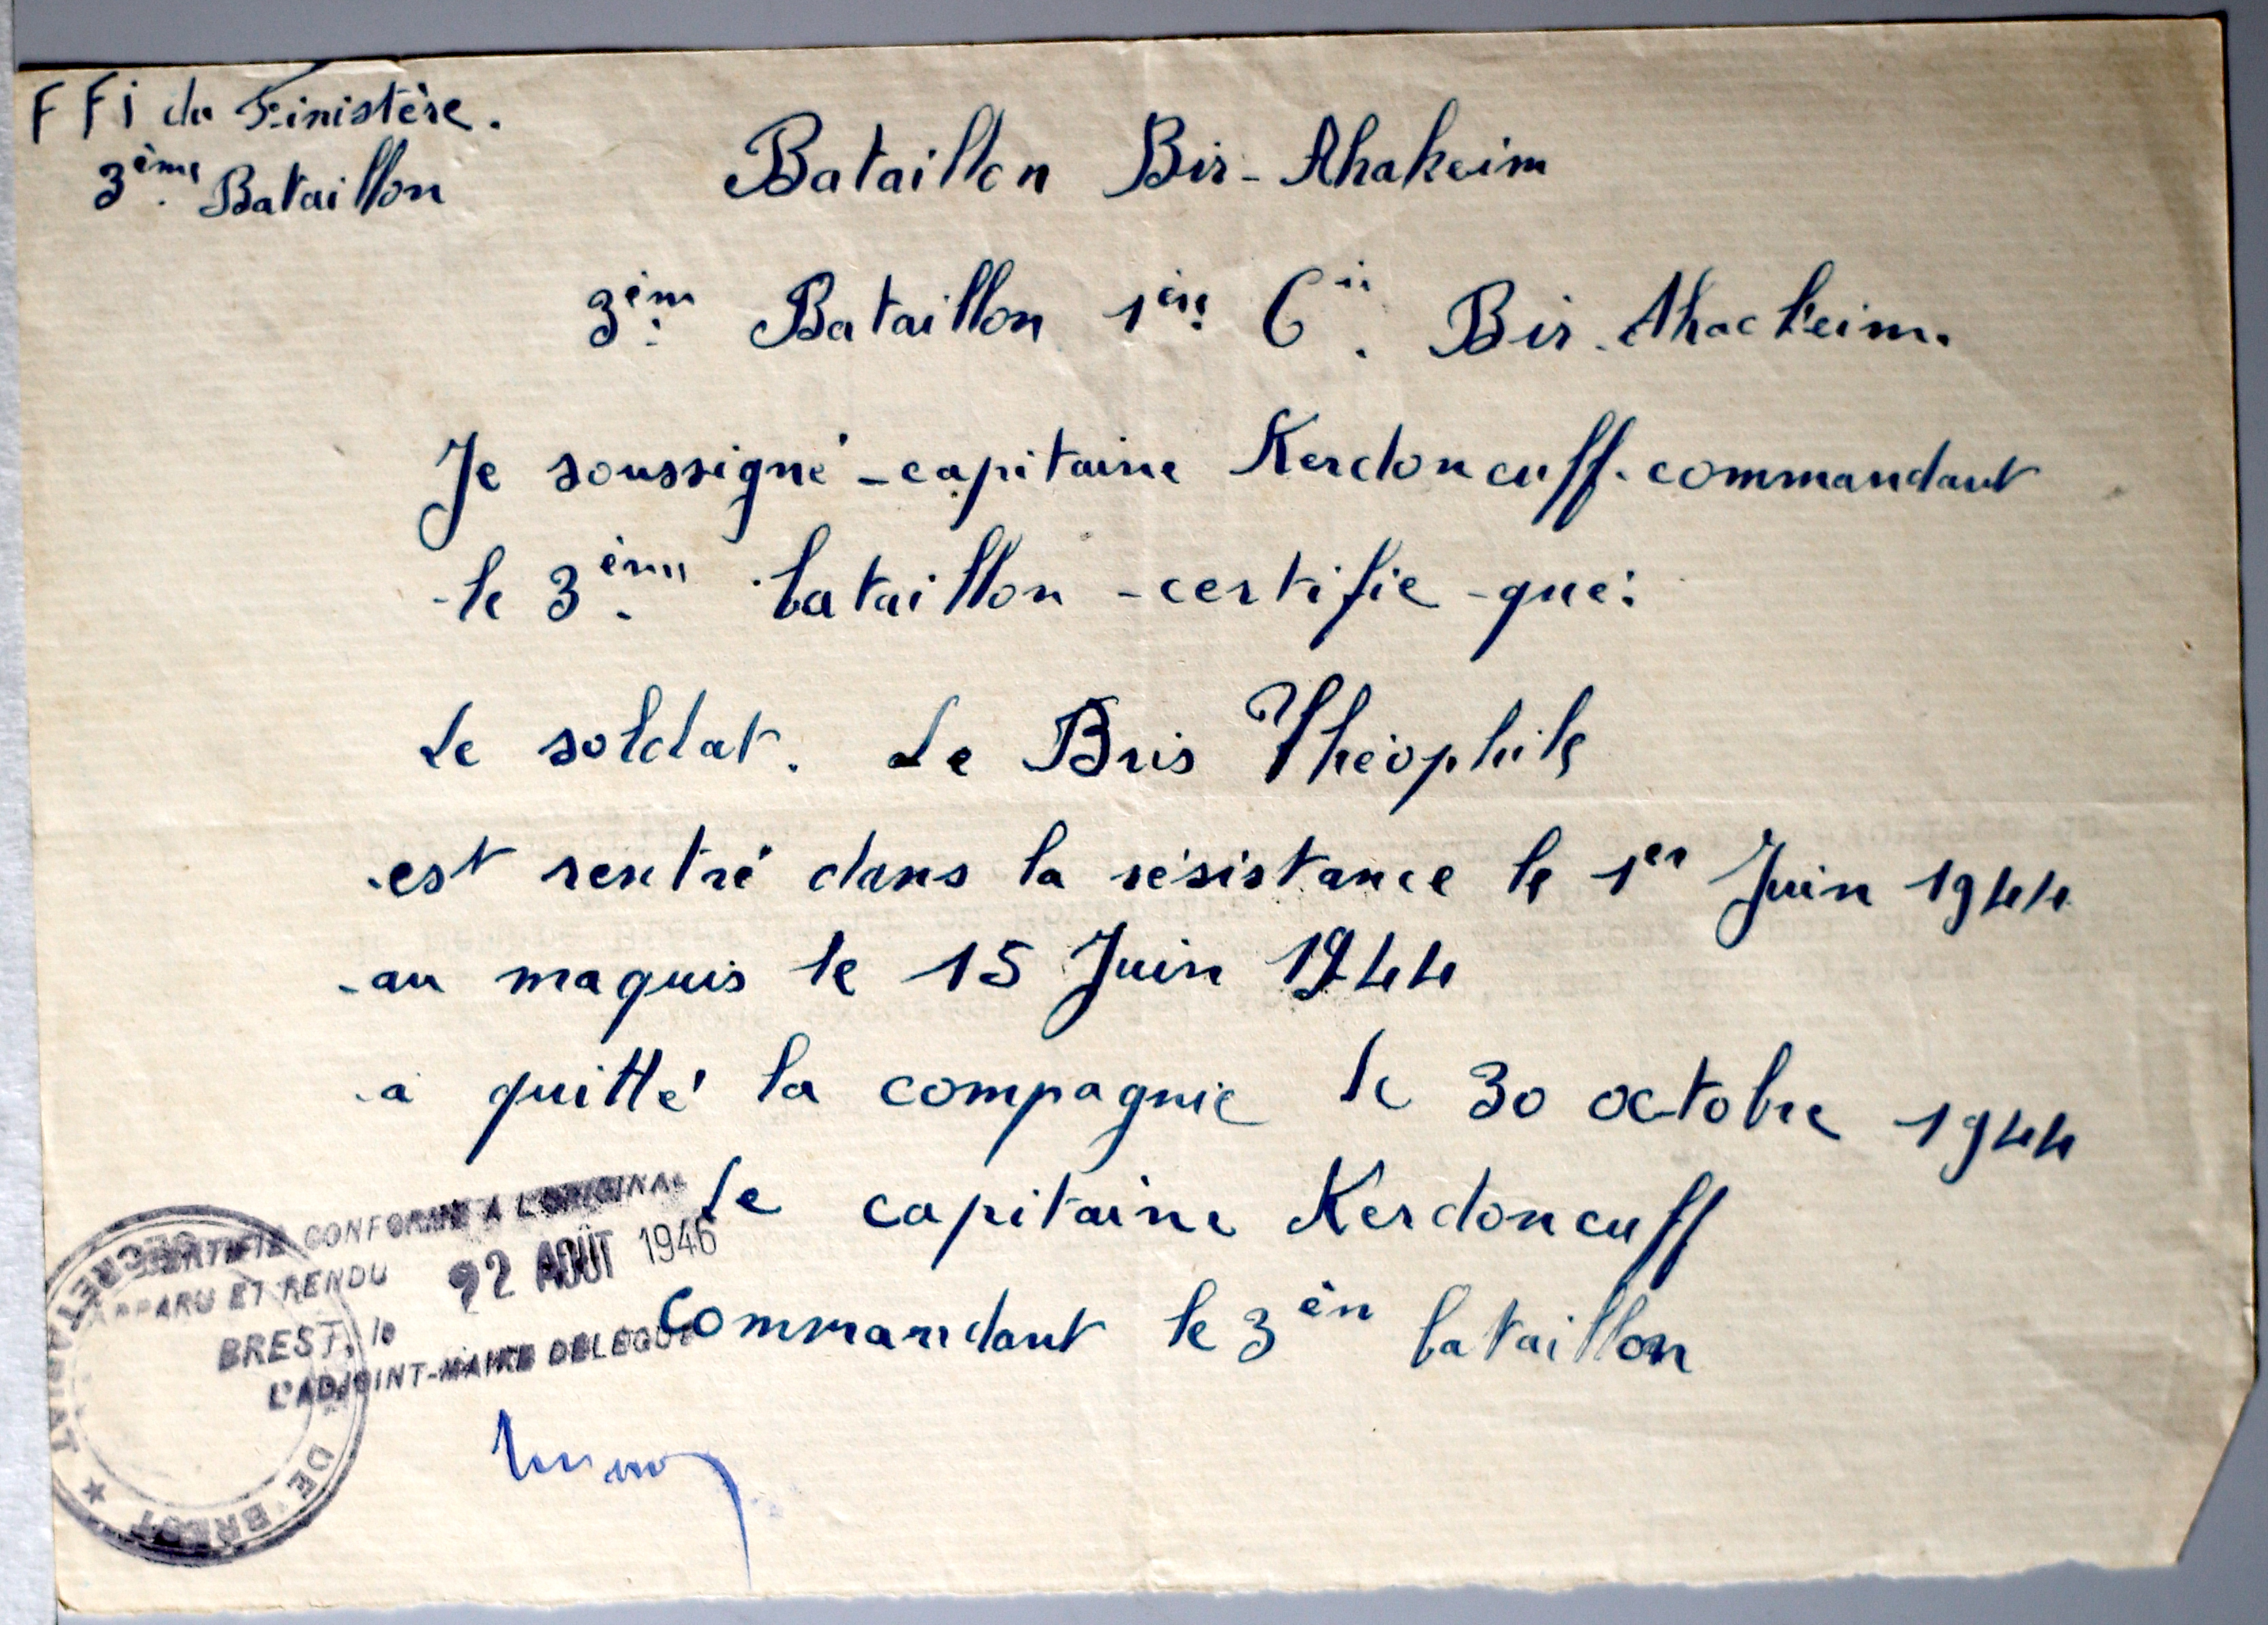 FFi du Finistère.
3ème Bataillon
Bataillon Bir-Ahakeim
3èm Bataillon 1ère Cie. Bir. Ahackeim.
Je soussigné - capitaine Kerdoncuff - commandant
- le 3ème bataillon - certifie - que:
Le soldat. Le Bris Théophile
- est rentré dans la résistance le 1er Juin 1944
- au maquis le 15 Juin 1944
- a quitté la compagnie le 30 octobre 1944
Le capitaine Kerdoncuff
Commandant le 3èm bataillon
CERTIFIÉ CONFORME A L'ORIGINAL
APPARU ET RENDU
BREST, le 22 AOÛT 1946
L'ADJOINT-MAIRE DELEGUE
SECRETARIAT ★ DE BREST